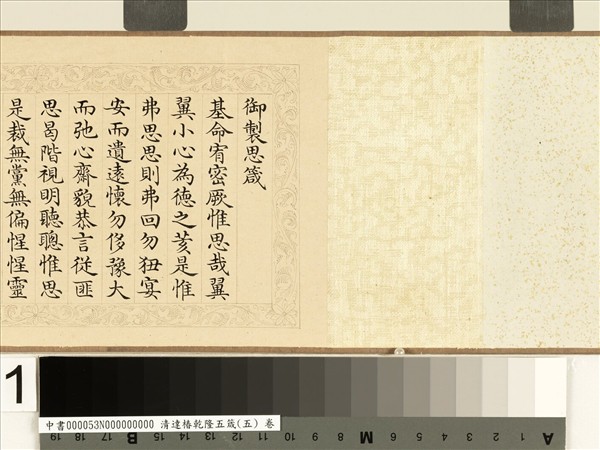 御製思箴
基命宥密厥惟思哉翼
翼小心為德之荄是惟
弗思思則弗回勿狃宴
安而遺遠懷勿侈豫大
而弛心齋貌恭言從匪
思曷階視明聽聰惟思
是裁無黨無偏惺惺靈
1
中書000053N000000000 清達椿乾隆五箴(五) 卷
19 18 17 16 15 14 B 12 11 10 9 8 7 6 M 4 3 2 1 A